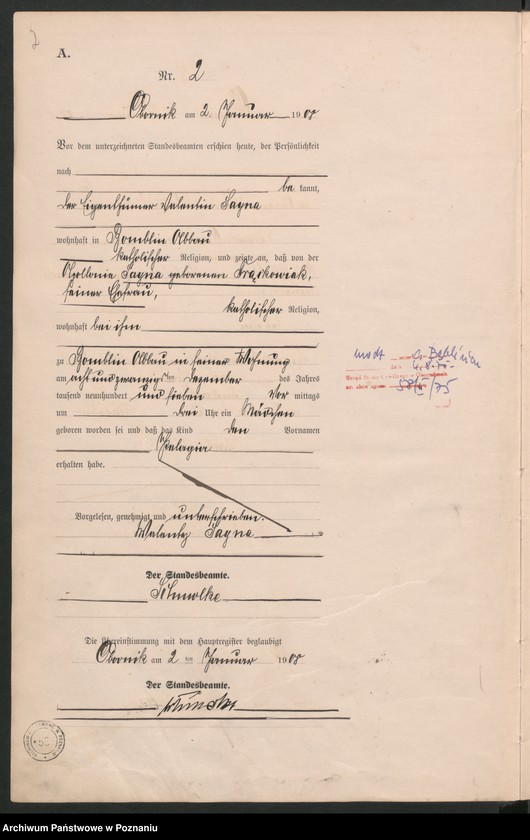 2
A.
Nr. 2
Obornik am 2. Januar 1908
Vor dem unterzeichneten Standesbeamten erschien heute, der Persönlichkeit
nach
be kannt,
der Eigenthümer Valentin
wohnhaft in Abbau
katholischer Religion, und zeigte an, daß von der
geborenen Frąckowiak,
seiner Ehefrau,
katholischer Religion,
wohnhaft bei ihm
zu Abbau in seiner Wohnung
am acht und zwanzigsten Dezember des Jahres
tausend neunhundert und sieben Vor mittags
um drei Uhr ein Mädchen
geboren worden sei und daß das Kind den Vornamen
Pelagia
erhalten habe.
Vorgelesen, genehmigt und unterschrieben.
Walenty
Der Standesbeamte.
Schmolke
Die Übereinstimmung mit dem Hauptregister beglaubigt
Obornik am 2 ten Januar 1908
Der Standesbeamte.
Archiwum Państwowe w Poznaniu